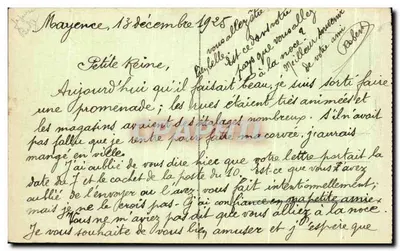 Mayence, 13 décembre 1925
Petite Reine,
Aujourd'hui qu'il faisait beau, je suis sorti faire
une promenade; les rues étaient très animées et
les magasins avaient d'étalages nombreux. S'il n'avait
pas fallu que je rentre pour faire ma corvée, j'aurais
mangé en ville.
J'ai oublié de vous dire hier que votre lettre portait la
date du 7 et le cachet de la poste du 10, est-ce que vous l'avez
oublié de l'envoyer ou l'avez vous fait intentionnellement;
mais je ne le crois pas. J'ai confiance en ma petite amie.
Vous ne m'aviez pas dit que vous alliez à la noce.
Je vous souhaite de vous bien amuser et j'espère que
vous allez être
est-ce dans votre
pays que vous allez
à la noce
Meilleur souvenir
de votre ami
Robert